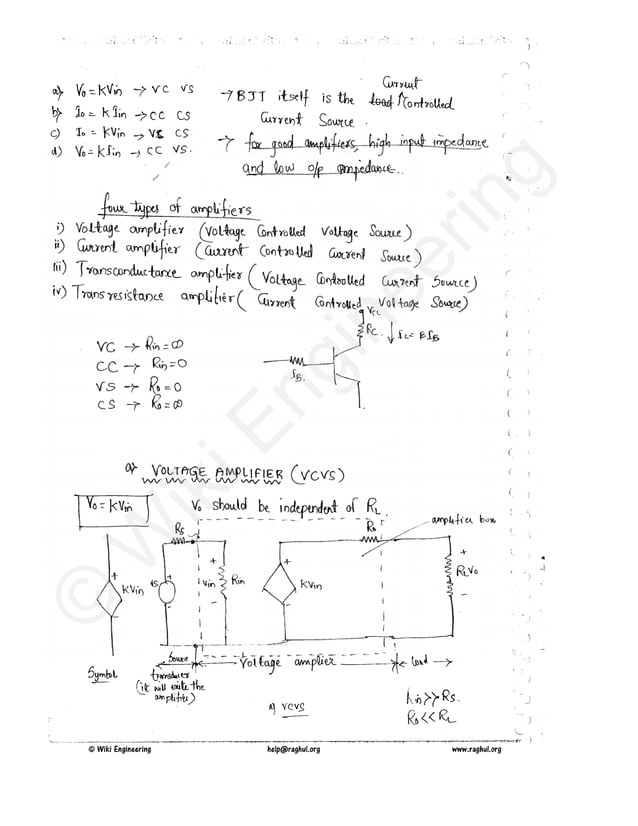 a) Vo = KVin → VC VS
b) Io = K Iin → CC CS
c) Io = KVin → VC CS
d) Vo = K Iin → CC VS.
→ BJT itself is the Current Controlled
Current Source.
→ for good amplifiers, high input impedance
and low o/p impedance..
four types of amplifiers
i) Voltage amplifier (Voltage Controlled Voltage Source)
ii) Current amplifier (Current Controlled Current Source)
iii) Transconductance amplifier (Voltage Controlled Current Source)
iv) Transresistance amplifier (Current Controlled Voltage Source)
VC → Rin = ∞
CC → Rin = 0
VS → Ro = 0
CS → Ro = ∞
Vcc
Rc
↓ Ic = BIB
IB
a) VOLTAGE AMPLIFIER (VCVS)
Vo = KVin
Vo should be independent of RL
amplifier box
Rs
Ro
+ KVin -
+ Vin - Rin
+ KVin -
+ RL Vo -
Symbol
Source
Voltage amplier
Load
transducer
(it will exite the
amplifier)
a) VCVS
Rin >> Rs.
Ro << RL
© Wiki Engineering
© Wiki Engineering help@raghul.org www.raghul.org